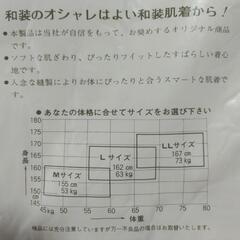 和装のオシャレはよい和装肌着から!
●本製品は当社が自信をもって、お奨めするオリジナル商品です。
●ソフトな肌ざわり、ぴったりフイットしたすばらしい着心地です。
●入念な縫製によりお体にぴったりと合うスマートな肌着です。
●あなたの体格に合せてサイズをお選び下さい
180
175
170
165
160
155
150
145
身長
Mサイズ
155cm
53kg
Lサイズ
162cm
63kg
LLサイズ
167cm
73kg
45kg 50 55 60 65 70 75 80
体重
検品には充分注意しておりますが万一不良品の場合はお取替いたします。